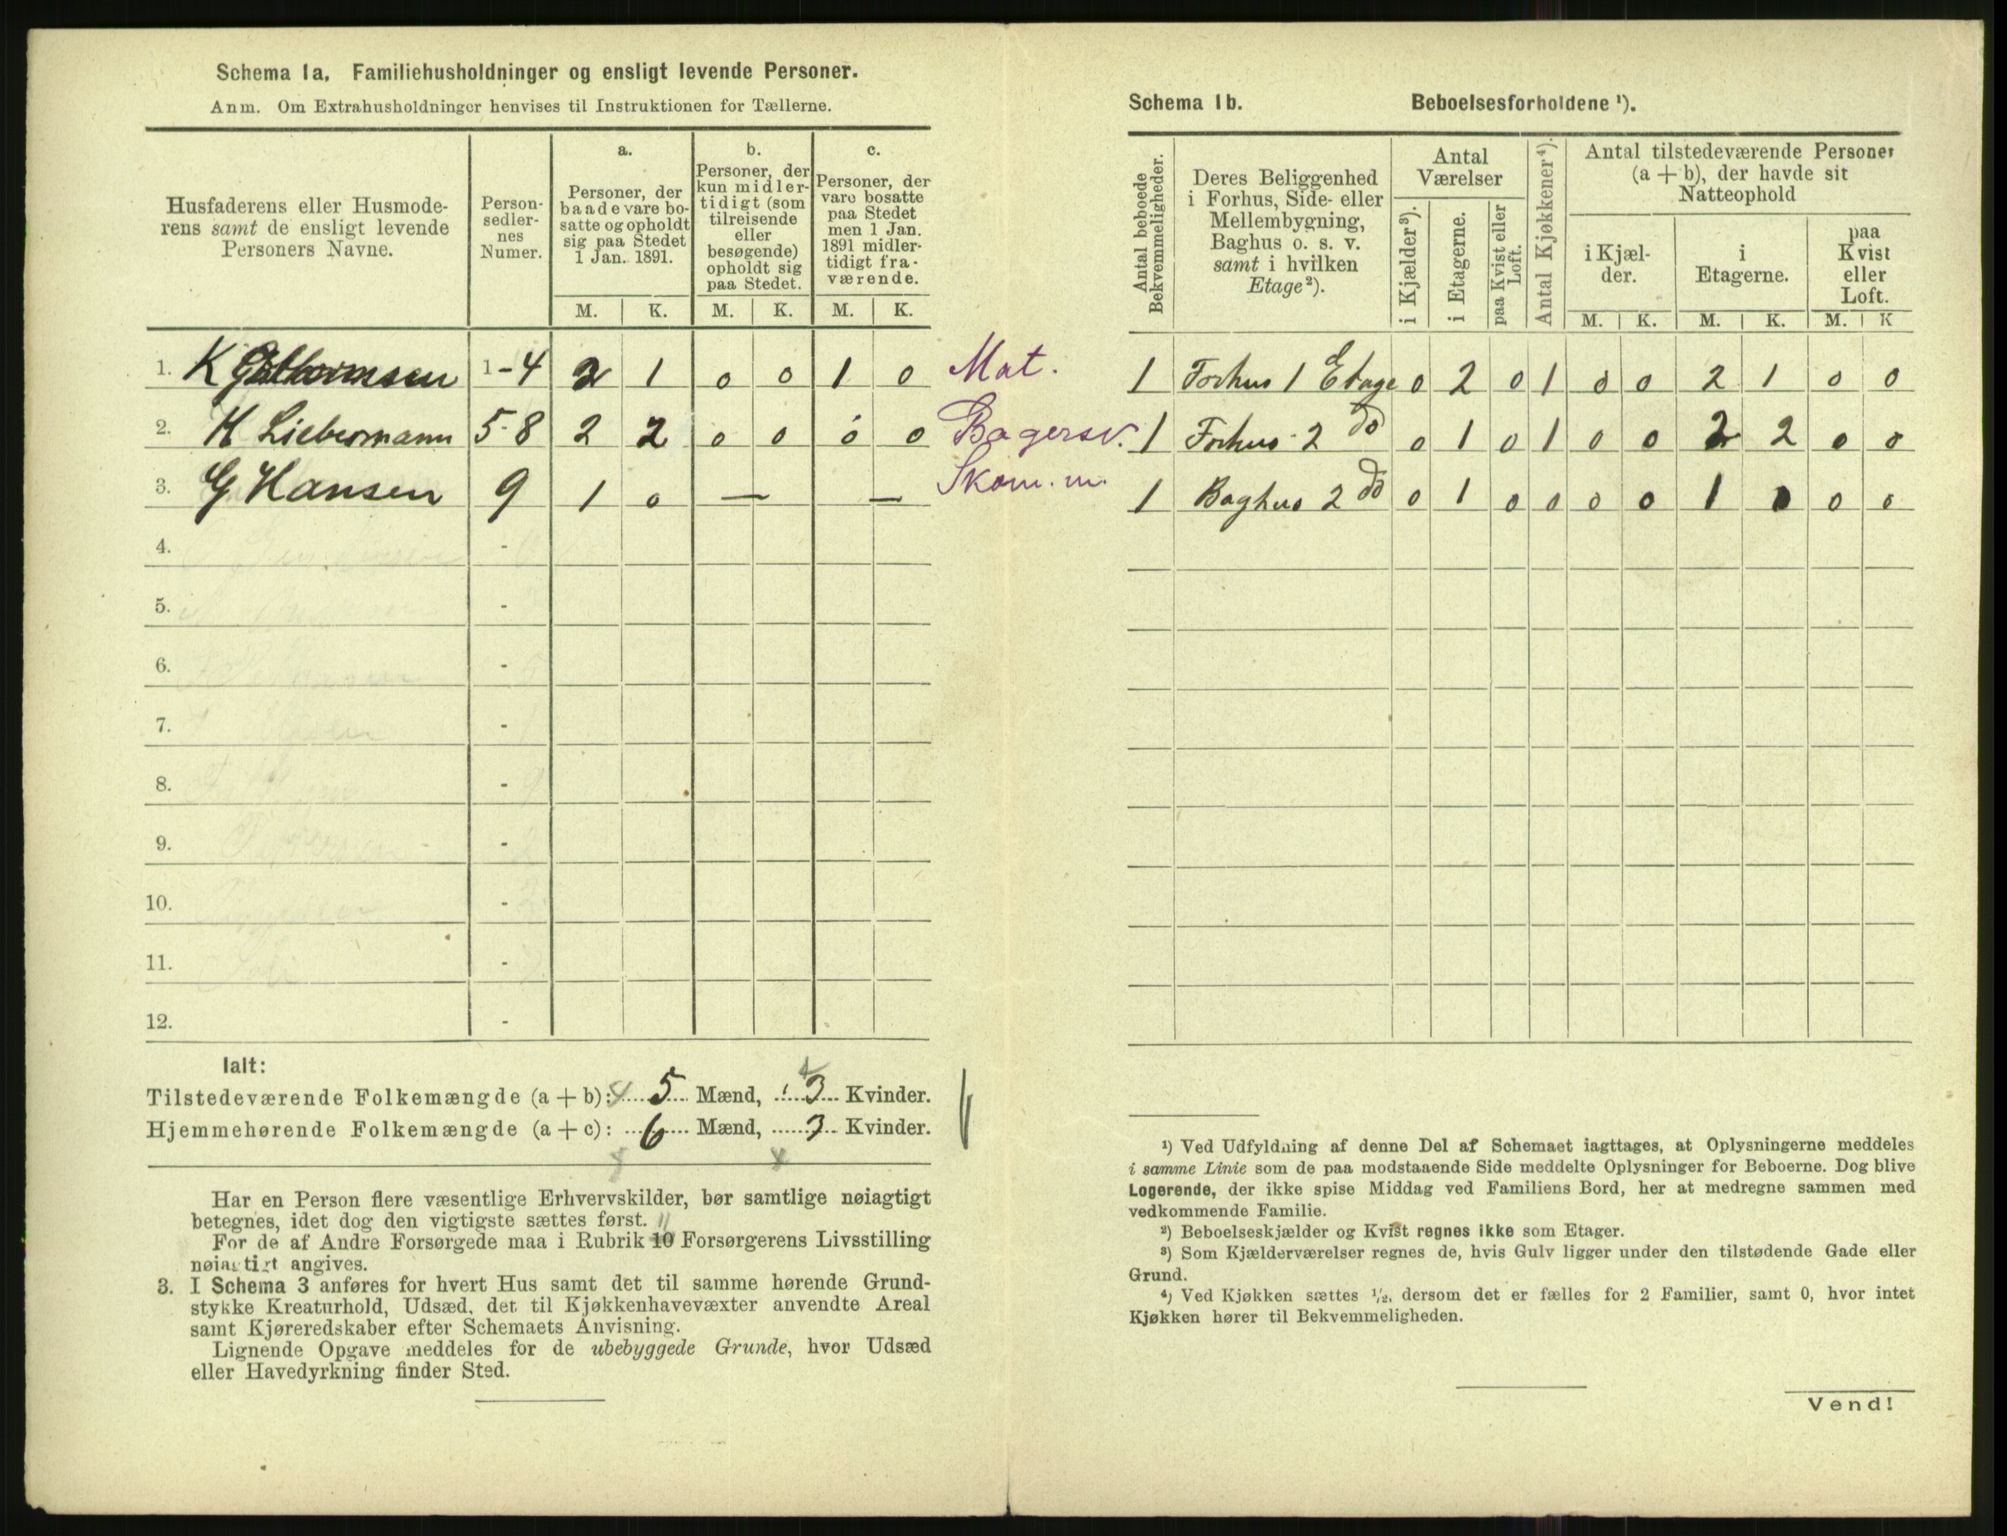 Schema 1a. Familiehusholdninger og ensligt levende Personer.
Anm. Om Extrahusholdninger henvises til Instruktionen for Tællerne.
Husfaderens eller Husmoderens samt de ensligt levende Personers Navne.
Personsedlernes Numer.
a.
Personer, der baade vare bosatte og opholdt sig paa Stedet 1 Jan. 1891.
b.
Personer, der kun midlertidigt (som tilreisende eller besøgende) opholdt sig paa Stedet.
c.
Personer, der vare bosatte paa Stedet men 1 Jan. 1891 midlertidigt fraværende.
M. K. M. K. M. K.
1. K 1-4 2 1 0 0 1 0 Mat.
2. H Liebermann 5-8 2 2 0 0 0 0 Bagersv.
3. G Hansen 9 1 0 — — Skom. m.
4. -
5. -
6. -
7. -
8. -
9. -
10. -
11. -
12. -
Ialt:
Tilstedeværende Folkemængde (a + b): 5 Mænd, 3 Kvinder.
Hjemmehørende Folkemængde (a + c): 6 Mænd, 3 Kvinder.
Har en Person flere væsentlige Erhvervskilder, bør samtlige nøiagtigt
betegnes, idet dog den vigtigste sættes først.
11
For de af Andre Forsørgede maa i Rubrik 10 Forsørgerens Livsstilling
nøiagtigt angives.
3. I Schema 3 anføres for hvert Hus samt det til samme hørende Grund-
stykke Kreaturhold, Udsæd, det til Kjøkkenhavevæxter anvendte Areal
samt Kjøreredskaber efter Schemaets Anvisning.
Lignende Opgave meddeles for de ubebyggede Grunde, hvor Udsæd
eller Havedyrkning finder Sted.
Schema 1b. Beboelsesforholdene ¹).
Antal beboede Bekvemmeligheder.
Deres Beliggenhed i Forhus, Side- eller Mellembygning, Baghus o. s. v. samt i hvilken Etage²).
Antal Værelser
i Kjælder³).
i Etagerne.
paa Kvist eller Loft.
Antal Kjøkkener⁴).
Antal tilstedeværende Personer (a + b), der havde sit Natteophold
i Kjælder.
i Etagerne.
paa Kvist eller Loft.
M. K. M. K. M. K
1 Forhus 1 Etage 0 2 0 1 0 0 2 1 0 0
1 Forhus 2 do 0 1 0 1 0 0 2 2 0 0
1 Baghus 2 do 0 1 0 0 0 0 1 0 0 0
¹) Ved Udfyldning af denne Del af Schemaet iagttages, at Oplysningerne meddeles
i samme Linie som de paa modstaaende Side meddelte Oplysninger for Beboerne. Dog blive
Logerende, der ikke spise Middag ved Familiens Bord, her at medregne sammen med
vedkommende Familie.
²) Beboelseskjælder og Kvist regnes ikke som Etager.
³) Som Kjælderværelser regnes de, hvis Gulv ligger under den tilstødende Gade eller
Grund.
⁴) Ved Kjøkken sættes ½, dersom det er fælles for 2 Familier, samt 0, hvor intet
Kjøkken hører til Bekvemmeligheden.
Vend!